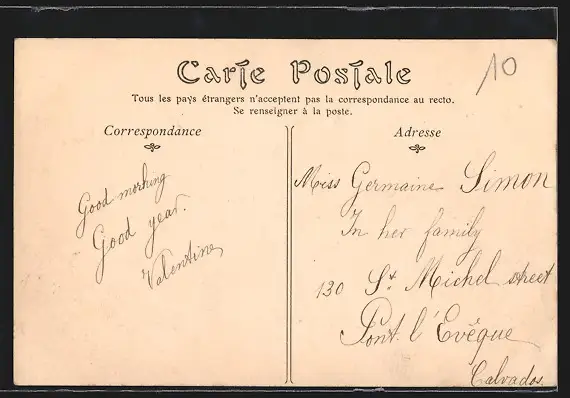 Carte Postale
10
Tous les pays étrangers n'acceptent pas la correspondance au recto.
Se renseigner à la poste.
Correspondance
Adresse
Good morning
Good year.
Valentine
Miss Germaine Simon
In her family
130 St Michel street
Pont l'Evêque
Calvados.